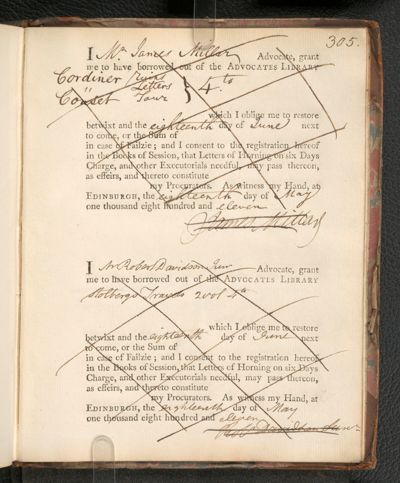 305.
I Mr James Millar Advocate, grant
me to have borrowed out of the ADVOCATES LIBRARY
Cordiner Ruins } 4to
" Letters
Consett Tour
which I oblige me to restore
betwixt and the eighteenth day of June next
to come, or the Sum of
in case of Failzie; and I consent to the registration hereof
in the Books of Session, that Letters of Horning on six Days
Charge, and other Executorials needful, may pass thereon,
as effeirs, and thereto constitute
my Procurators. As witness my Hand, at
EDINBURGH, the eighteenth day of May
one thousand eight hundred and eleven
James Millar
I Mr Robert Davidson Junr Advocate, grant
me to have borrowed out of the ADVOCATES LIBRARY
Stolbergs Travels 2 vol 4to
which I oblige me to restore
betwixt and the eighteenth day of June next
to come, or the Sum of
in case of Failzie; and I consent to the registration hereof
in the Books of Session, that Letters of Horning on six Days
Charge, and other Executorials needful, may pass thereon,
as effeirs, and thereto constitute
my Procurators. As witness my Hand, at
EDINBURGH, the eighteenth day of May
one thousand eight hundred and eleven
Davidson Junr